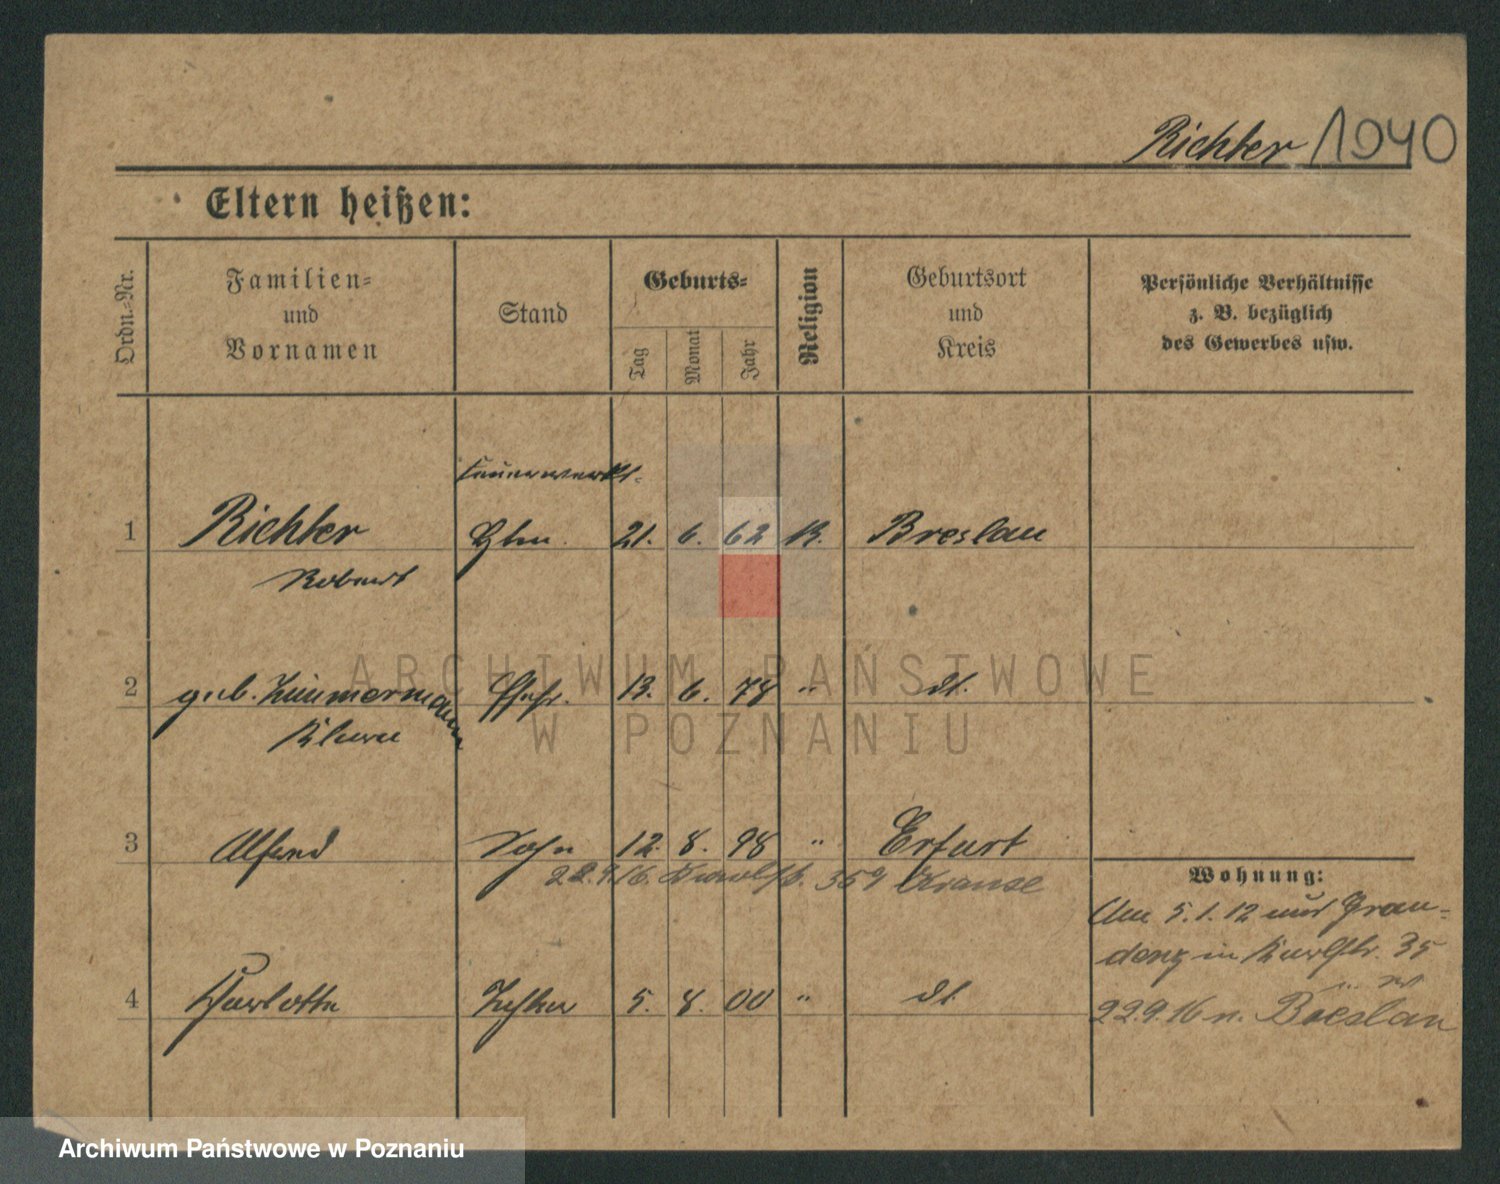 Richter /1940
Eltern heißen:
Ordn.-Nr.
Familien-
und
Vornamen
Stand
Geburts-
Tag
Monat
Jahr
Religion
Geburtsort
und
Kreis
Persönliche Verhältnisse
z. B. bezüglich
des Gewerbes usw.
Feuerwerks-
1 Richter 21. 6. 62 K. Breslau
Robert
2 geb. Zimmermann Ehefr. 13. 6. 78 " dt.
Klara
3 Alfred Sohn 12. 8. 98 " Erfurt
22.9.16. 359 Krause
4 Charlotte Tochter 5. 8. 00 " dt.
Wohnung:
Am 5.1.12 aus Grau-
denz in Karlstr. 35
22.9.16 n. Breslau
ARCHIWUM PAŃSTWOWE
W POZNANIU
Archiwum Państwowe w Poznaniu